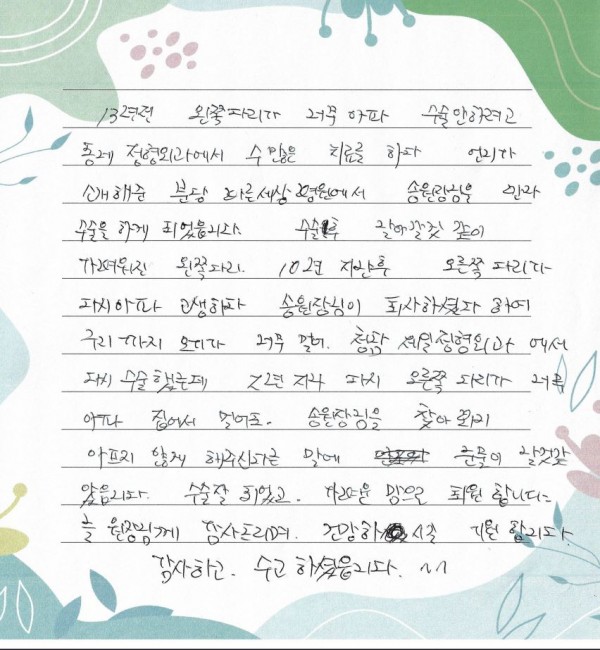 13년전 왼쪽다리가 너무 아파 수술안하려고
동네 정형외과에서 수 많은 치료를 하다 언니가
소개해준 분당 바른세상병원에서 송원장님을 만나
수술을 하게 되었습니다. 수술후 날아갈것 같이
가벼워진 왼쪽다리. 10년 지난후 오른쪽 다리가
다시아파 고생하다 송원장님이 퇴사하셨다 하여
구리까지 오기가 너무 멀어. 세일정형외과에서
다시 수술했는데 2년 지나 다시 오른쪽 다리가 너무
아파 집에서 멀어도. 송원장님을 찾아 뵈니
아프지 않게 해주신다는 말에 눈물이 날것같
았습니다. 수술잘 되었고. 가벼운 맘으로 퇴원 합니다~
늘 원장님께 감사드리며. 건강하 시길 기원 합니다.
감사하고. 수고 하셨습니다. ^^